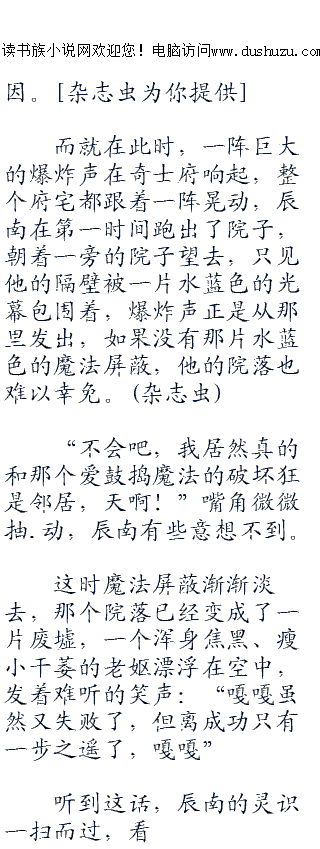 读书族小说网欢迎您！电脑访问www.dushuzu.com
因。[杂志虫为你提供]
而就在此时，一阵巨大
的爆炸声在奇士府响起，整
个府宅都跟着一阵晃动，辰
南在第一时间跑出了院子，
朝着一旁的院子望去，只见
他的隔壁被一片水蓝色的光
幕包围着，爆炸声正是从那
里发出，如果没有那片水蓝
色的魔法屏蔽，他的院落也
难以幸免。(杂志虫)
“不会吧，我居然真的
和那个爱鼓捣魔法的破坏狂
是邻居，天啊！”嘴角微微
抽.动，辰南有些意想不到。
这时魔法屏蔽渐渐淡
去，那个院落已经变成了一
片废墟，一个浑身焦黑、瘦
小干萎的老妪漂浮在空中，
发着难听的笑声：“嘎嘎虽
然又失败了，但离成功只有
一步之遥了，嘎嘎”
听到这话，辰南的灵识
一扫而过，看